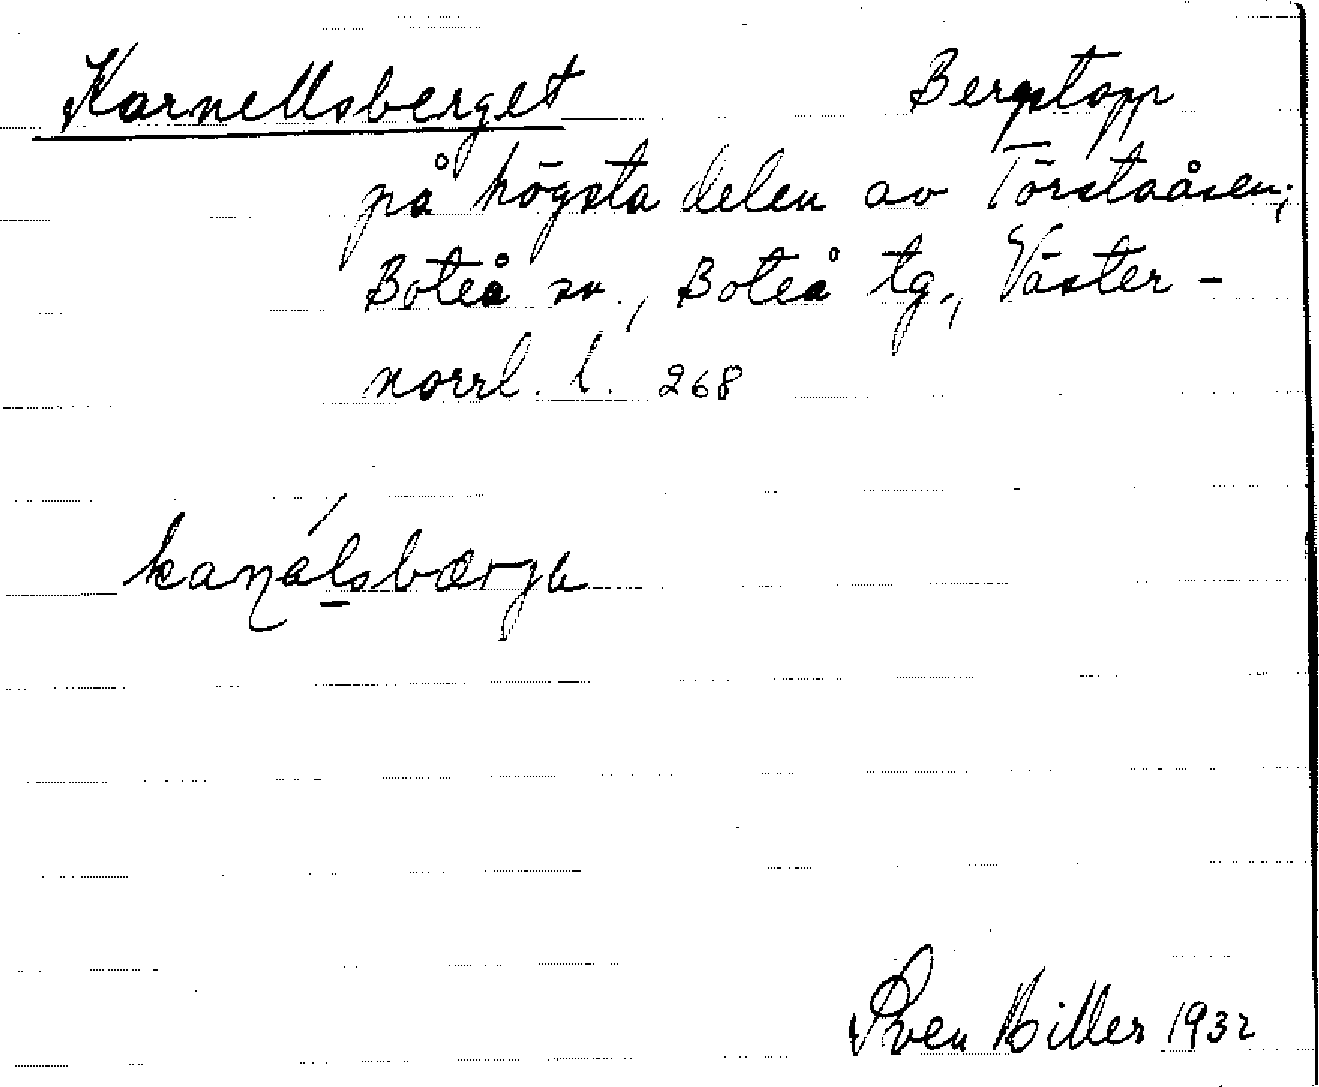 Karnellsberget Bergstopp
på högsta delen av Törstaåsen;
Boteå sn., Boteå tg., Väster-
norrl. l. 268
kaṇálsbærja
Sven Hiller 1932